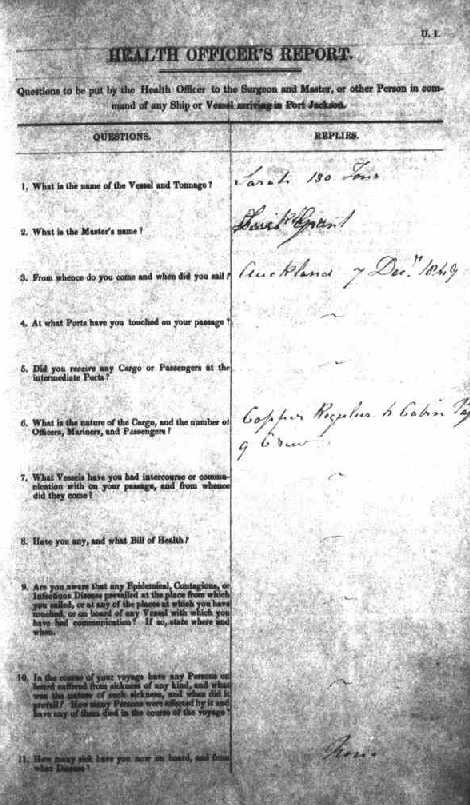 U. 1.
HEALTH OFFICER'S REPORT.
Questions to be put by the Health Officer to the Surgeon and Master, or other Person in com-
mand of any Ship or Vessel arriving in Port Jackson.
QUESTIONS. REPLIES.
1. What is the name of the Vessel and Tonnage? Sarah 130 Tons
2. What is the Master's name? Grant
3. From whence do you come and when did you sail? Auckland 7 Decr. 1849
4. At what Ports have you touched on your passage? ~
5. Did you receive any Cargo or Passengers at the
intermediate Ports? ~
6. What is the nature of the Cargo, and the number of Copper Regulus Cabin
Officers, Mariners, and Passengers? 9 Crew
7. What Vessels have you had intercourse or commu-
nication with on your passage, and from whence
did they come? ~
8. Have you any, and what Bill of Health? ~
9. Are you aware that any Epidemical, Contagious, or
Infectious Disease prevailed at the place from which
you sailed, or at any of the places at which you have
touched, or on board of any Vessel with which you
have had communication? If so, state where and
when. ~
10. In the course of your voyage have any Persons on
board suffered from sickness of any kind, and what
was the nature of such sickness, and when did it
prevail? How many Persons were affected by it and
have any of them died in the course of the voyage? ~
11. How many sick have you now on board, and from
what Disease? None